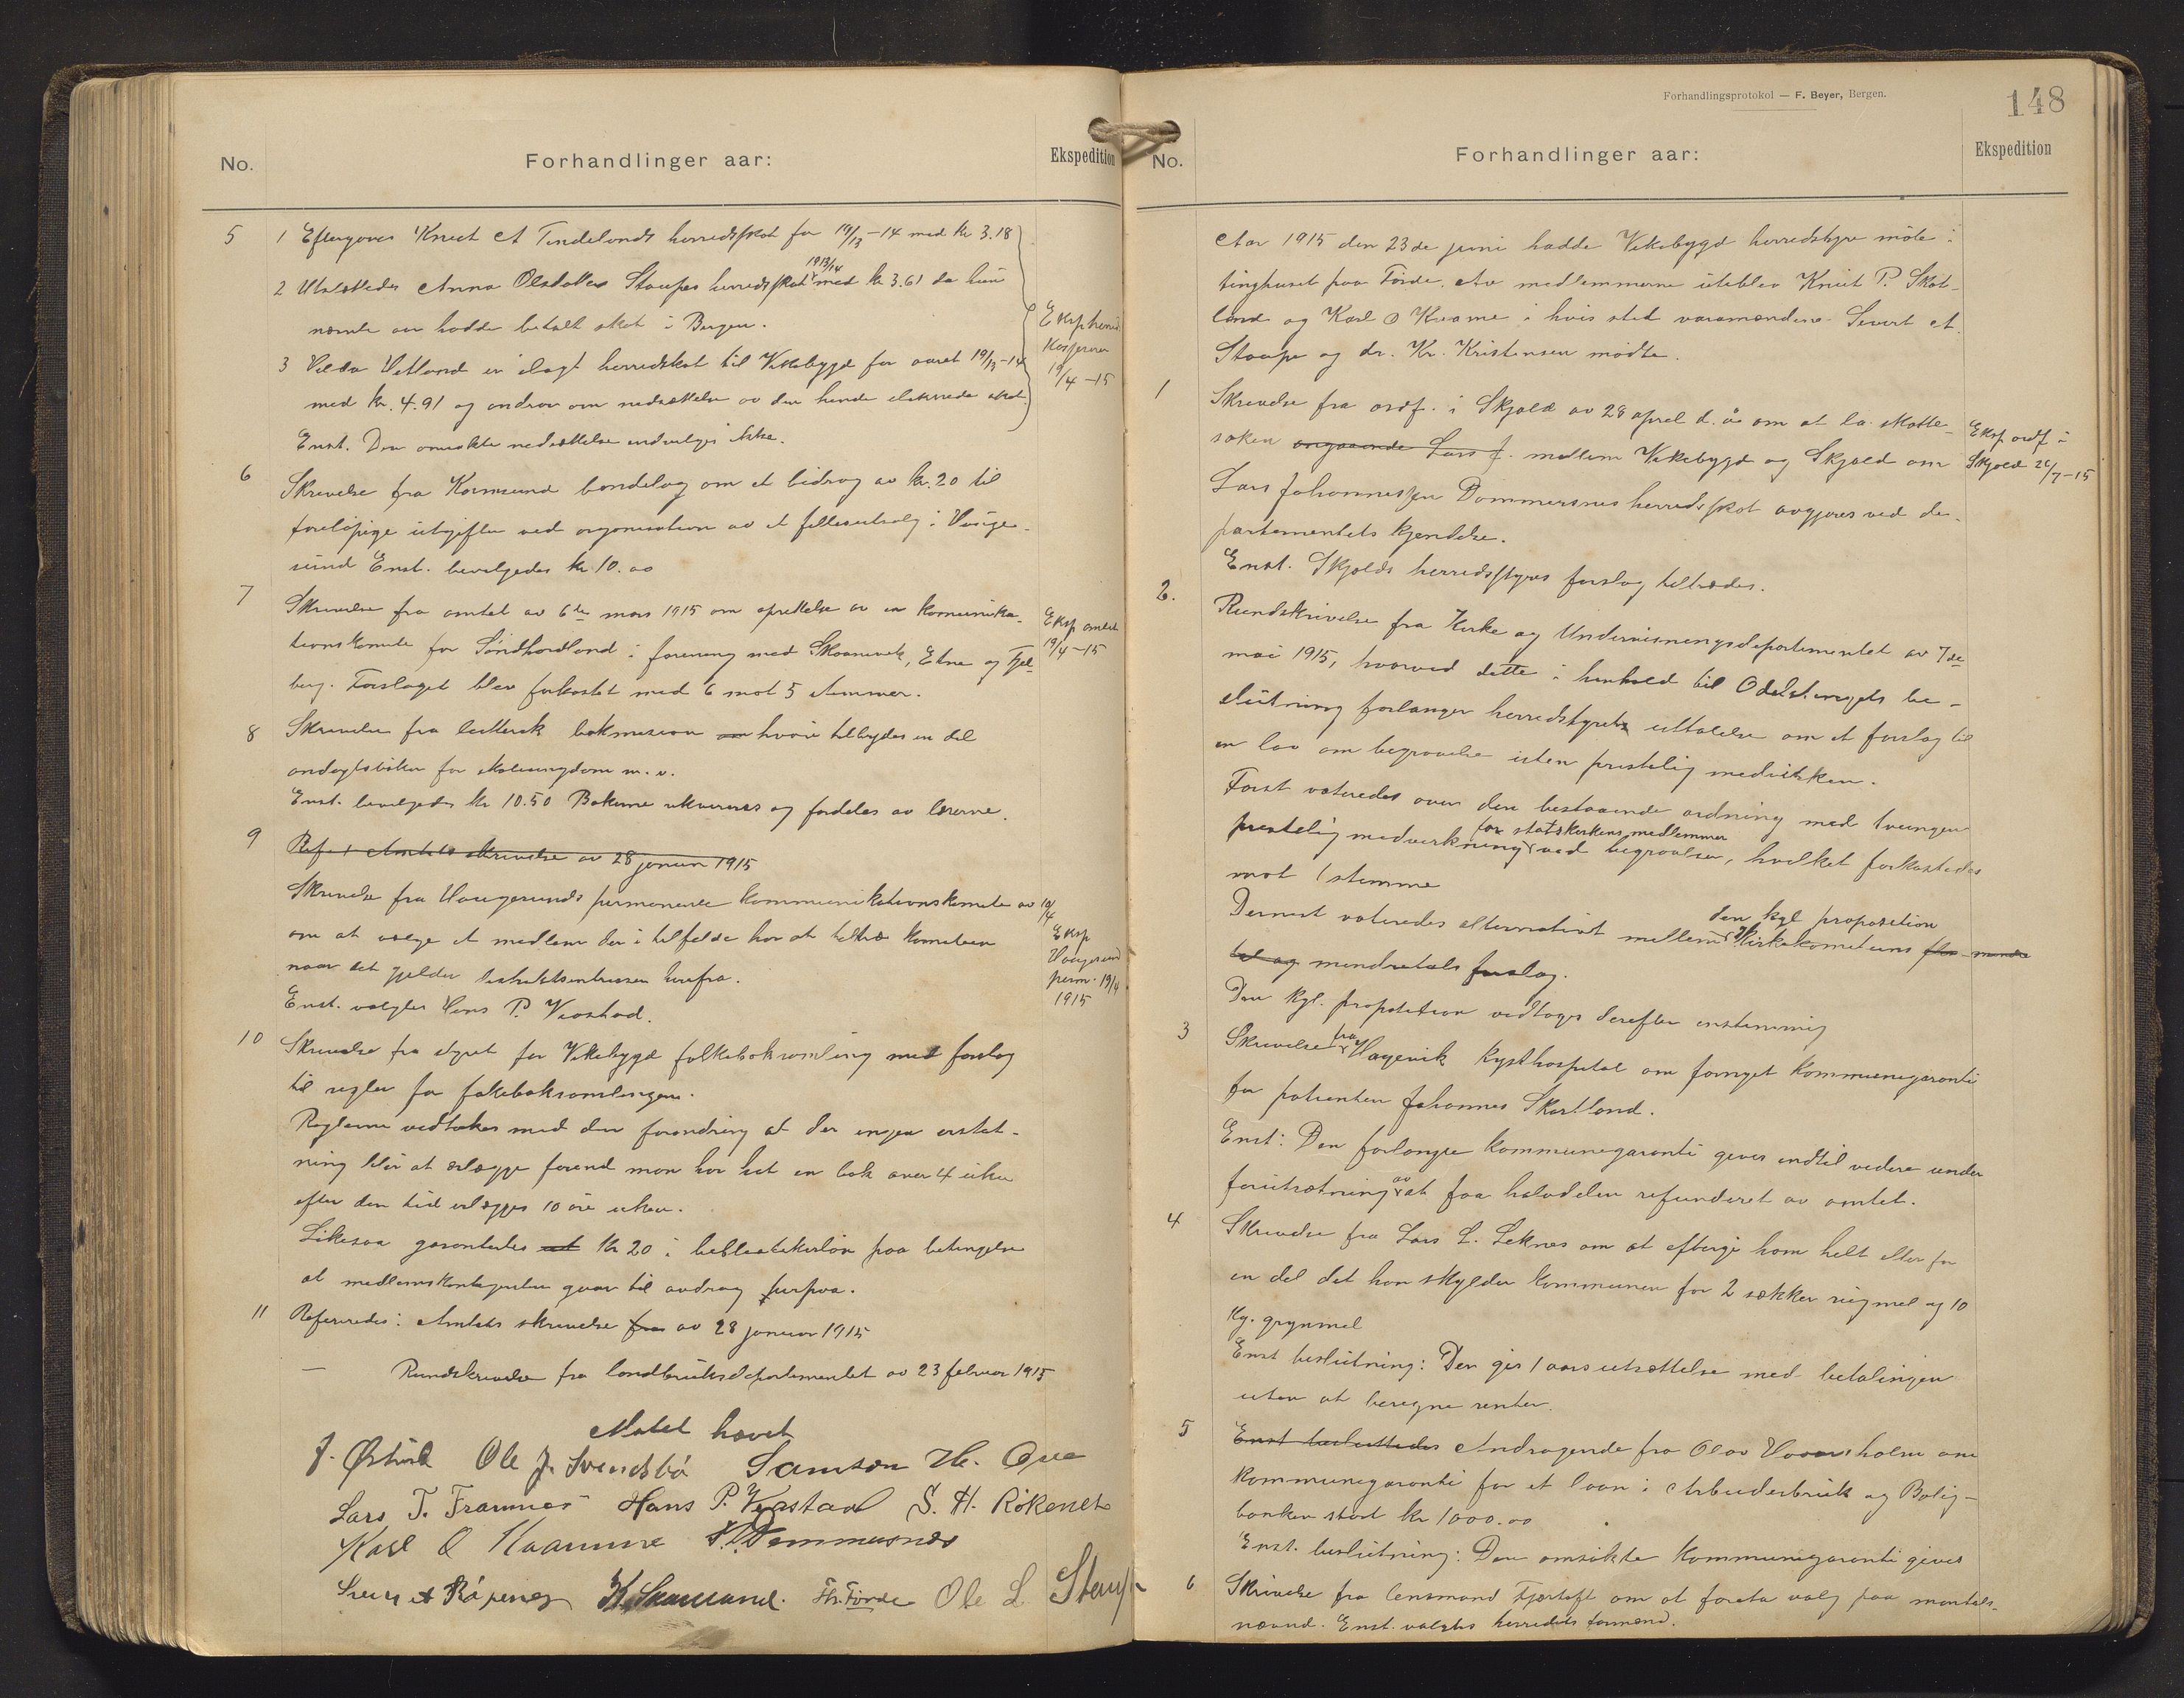 No.
Forhandlinger aar:
Ekspedition
5 1 Eftergives Knut A Tindelands herredsskat for 19/13-14 med kr 3.18
2 Utslettedes Anna Olsdatter Staupes herredsskat 1913/14 med kr 3.61 da hun
nævnte aar hadde betalt skat i Bergen.
3 Vetland er ilagt herredskat til Vikebygd for aaret 19/13-14
med kr. 4.91 og andrar om nedsættelse av den hende skat.
Enst. Den omsøkte nedsættelse indvilges ikke.
Eksp herreds
kasserer
19/4-15
6 Skrivelse fra Karmsund bondelag om et bidrag av kr. 20 til
foreløpige utgifter ved organisation av et fellesutsalg i Hauge-
sund Enst. bevilgedes kr 10.00
7 Skrivelse fra amtet av 6te mars 1915 om oprettelse av en komunika-
tionskomite for Søndhordland i forening med Skaanevik, Etne og Fjel-
berg. Forslaget blev forkastet med 6 mot 5 stemmer.
Eksp amtet
19/4-15
8 Skrivelse fra luthersk bokmission om hvori tilbydes en del
andagtsbøker for skoleungdom m. v.
Enst. bevilgedes kr 10.50 Bøkerne rekvireres og fordeles av lærerne.
9 Ref. Amtets skrivelse av 28 januar 1915
Skrivelse fra Haugesunds permanente kommunikationskomite av 10/4
om at vælge et medlem der i tilfelde har at tiltræ komiteen
naar det gjelder distriktsinteresser herfra.
Enst. valgtes Hans P. Vrastad.
Eksp
Haugesund
perm. 19/4
1915
10 Skrivelse fra styret for Vikebygd folkeboksamling med forslag
til regler for folkeboksamlingen.
Reglerne vedtokes med den forandring at der ingen erstat-
ning blir at erlægge førend man har hat en bok over 4 uker
efter den tid erlægges 10 øre uken.
Likesaa garantertes at kr 20 i bibliotekarløn paa betingelse
at medlemskontingenten gaar til avdrag herpaa.
11 Refereredes: Amtets skrivelse fra av 28 januar 1915
— Rundskrivelse fra landbruksdepartementet av 23 februar 1915
Møtet hævet
J. Østvik Ole J. Svendsbø Samson H. Øye
Lars T. Framnes Hans P. Vrastad S. H. Røkenes
Karl O Kvamme Dommersnes
K. Skartland. Th. Førde Ole L Staupe
Forhandlingsprotokol — F. Beyer, Bergen.
148
No.
Forhandlinger aar:
Ekspedition
Aar 1915 den 23de juni hadde Vikebygd herredstyre møte i
tinghuset paa Førde. Av medlemmerne uteblev Knut P. Skart-
land og Karl O Kvame i hvis sted varamændene Sivert A.
Staupe og dr. Kr. Kristensen mødte.
1 Skrivelse fra ordf. i Skjold av 28 april d. å. om at la skatte-
saken angaaende Lars J. mellem Vikebygd og Skjold om
Lars Johannessen Dommersnes herredsskat avgjøres ved de-
partementets kjendelse.
Enst. Skjolds herredsstyres forslag tiltrædes.
Eksp ordf i
Skjold 26/7-15
2. Rundskrivelse fra Kirke og Undervisningsdepartementet av 7de
mai 1915, hvorved dette i henhold til Odelstingets be-
slutning forlanger herredstyrets uttalelse om et forslag til
en lov om begravelse uten prestelig medvirken.
Først voteredes over den bestaaende ordning med tvungen
prestelig medvirkning for statskirkens medlemmer ved begravelser, hvilket forkastedes
mot 1 stemme
Dernæst voteredes alternativt mellem den kgl proposition Kirkekomiteens fler- mindre
tal og mindretals forslag.
Den kgl. proposition vedtoges derefter enstemmig
3 Skrivelse fra Hagevik kysthospital om fornyet kommunegaranti
for patienten Johannes Skartland.
Enst: Den forlangte kommunegaranti gives indtil videre under
forutsætning av at faa halvdelen refunderet av amtet.
4 Skrivelse fra Lars L. Leknes om at eftergi ham helt eller for
en del det han skylder kommunen for 2 sækker rugmel og 10
kg. grynmel
Enst beslutning: Der gis 1 aars utsættelse med betalingen
uten at beregne renter.
5 Enst besluttedes Andragende fra Olav Haavesholm om
kommunegaranti for et laan i Arbeiderbruk og Bolig-
banken stort kr 1000.00
Enst. beslutning: Den omsøkte kommunegaranti gives
6 Skrivelse fra lensmand Fjærtoft om at foreta valg paa mantals-
nævnd. Enst. valgtes herredets formænd.